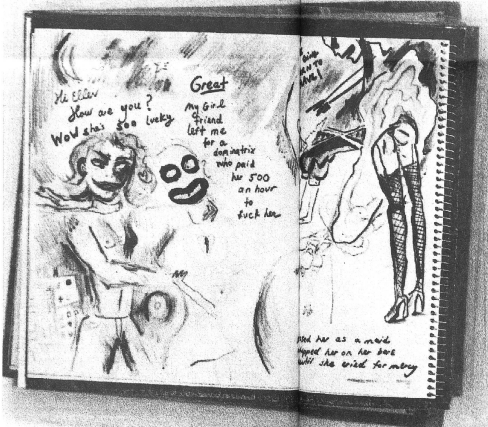 Hi Ellen
How are you?
Wow she's soo lucky
Great
My Girl
friend
left me
for a
dominatrix
who paid
her 500
an hour
to
fuck her
her as a maid
her on her bare
until she cried for mercy